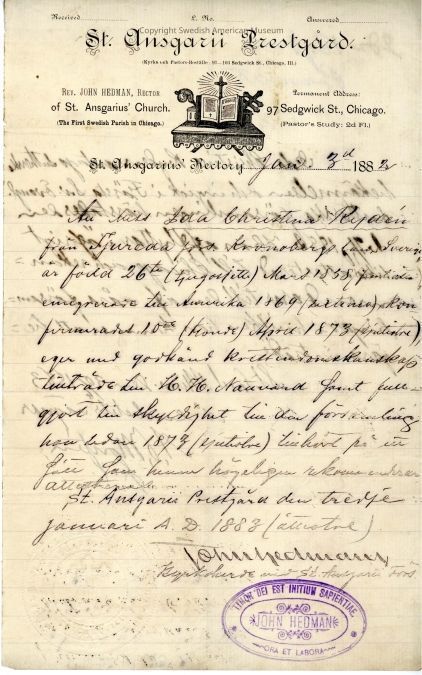 Copyright Swedish American Museum
Received L. No. Answered
St. Ansgarii Prestgård.
(Kyrka och Pastors-Boställe: 97—101 Sedgwick St., Chicago, Ill.)
REV. JOHN HEDMAN, RECTOR
of St. Ansgarius' Church.
(The First Swedish Parish in Chicago.)
Permanent Address:
97 Sedgwick St., Chicago.
(Pastor's Study: 2d Fl.)
St. Ansgarius' Rectory Jan. 3d 1883
Att Miss Ida Christina Rydén
från Tjureda Kronobergs Län, Sverige
är född 26te (tjugosjette) Mars 1858
emigrerade till Amerika 1869 kon
firmerades 10de (tionde) April 1873
eger med godkänd kristendomskunskap
tillträde till H. H. Nattvard samt full-
gjort sin skyldighet till den församling
hon sedan 1873 tillhört på ett
sätt som henne högeligen rekommenderar
attesteras
St. Ansgarii Prestgård den tredje
januari A. D. 1883
John Hedman
Kyrkoherde St. Ansgarii Förs
TIMOR DEI EST INITIUM SAPIENTIAE.
JOHN HEDMAN
ORA ET LABORA